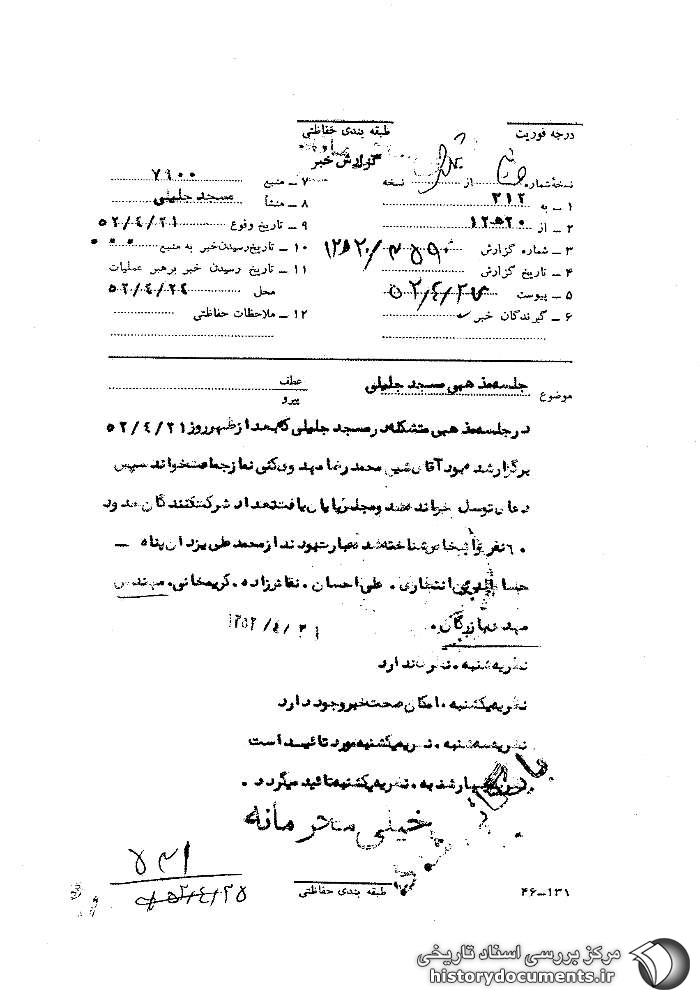 درجه فوریت
طبقه بندی حفاظتی
گزارش خبر
نسخهٔ شماره از نسخه
۷ ـ منبع ۷۹۰۰
۱ ـ به ۳۱۲
۸ ـ منشأ مسجد جلیلی
۲ ـ از ۱۲ﻫ۲۰
۹ ـ تاریخ وقوع ۵۲/۴/۲۱
۳ ـ شماره گزارش
۱۰ ـ تاریخ رسیدن خبر به منبع ۰۰۰
۴ ـ تاریخ گزارش
۱۱ ـ تاریخ رسیدن خبر برهبر عملیات
۵ ـ پیوست
محل ۵۲/۴/۲۴
۶ ـ گیرندگان خبر
۱۲ ـ ملاحظات حفاظتی
موضوع جلسه مذهبی مسجد جلیلی
عطف
پیرو
در جلسه مذهبی متشکله در مسجد جلیلی که بعد از ظهر روز ۵۲/۴/۲۱
برگزار شده بود آقای شیخ محمد رضا مهدوی کنی نماز جماعت خواند سپس
دعای توسل خوانده شد و مجلس پایان یافت تعداد شرکت کنندگان حدود
۶۰ نفر و اشخاص شناخته شده عبارت بودند از محمد علی یزدان پناه ـ
انتظاری . علی احسان . نقاش زاده . کریمخانی . مهندس
مهدی بازرگان .
۱۳۵۲/۴/۳۱
نظریه شنبه . نظری ندارد
نظریه یکشنبه . امکان صحت خبر وجود دارد
نظریه سه شنبه . نظریه یکشنبه مورد تائید است
نظریه یکشنبه تائید میگردد .
خیلی محرمانه
۵۲/۴/۲۵
طبقه بندی حفاظتی
۴۶-۱۳۱
مرکز بررسی اسناد تاریخی
historydocuments.ir